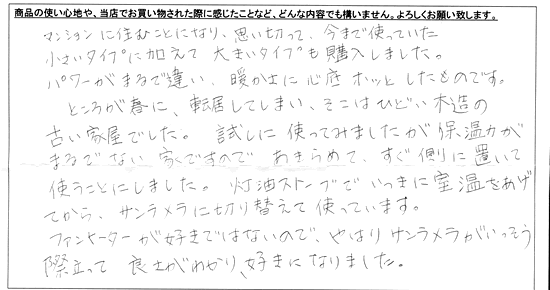 商品の使い心地や、当店でお買い物された際に感じたことなど、どんな内容でも構いません。よろしくお願い致します。
マンションに住むことになり、思い切って、今まで使っていた
小さいタイプに加えて大きいタイプも購入しました。
パワーがまるで違い、暖かさに心底ホッとしたものです。
ところが春に、転居してしまい、そこはひどい木造の
古い家屋でした。試しに使ってみましたが保温力が
まるでない家ですので あきらめて、すぐ側に置いて
使うことにしました。灯油ストーブでいっきに室温をあげ
てから、サンラメラに切り替えて使っています。
ファンヒーターが好きではないので、やはりサンラメラがいっそう
際立って 良さがわかり、好きになりました。